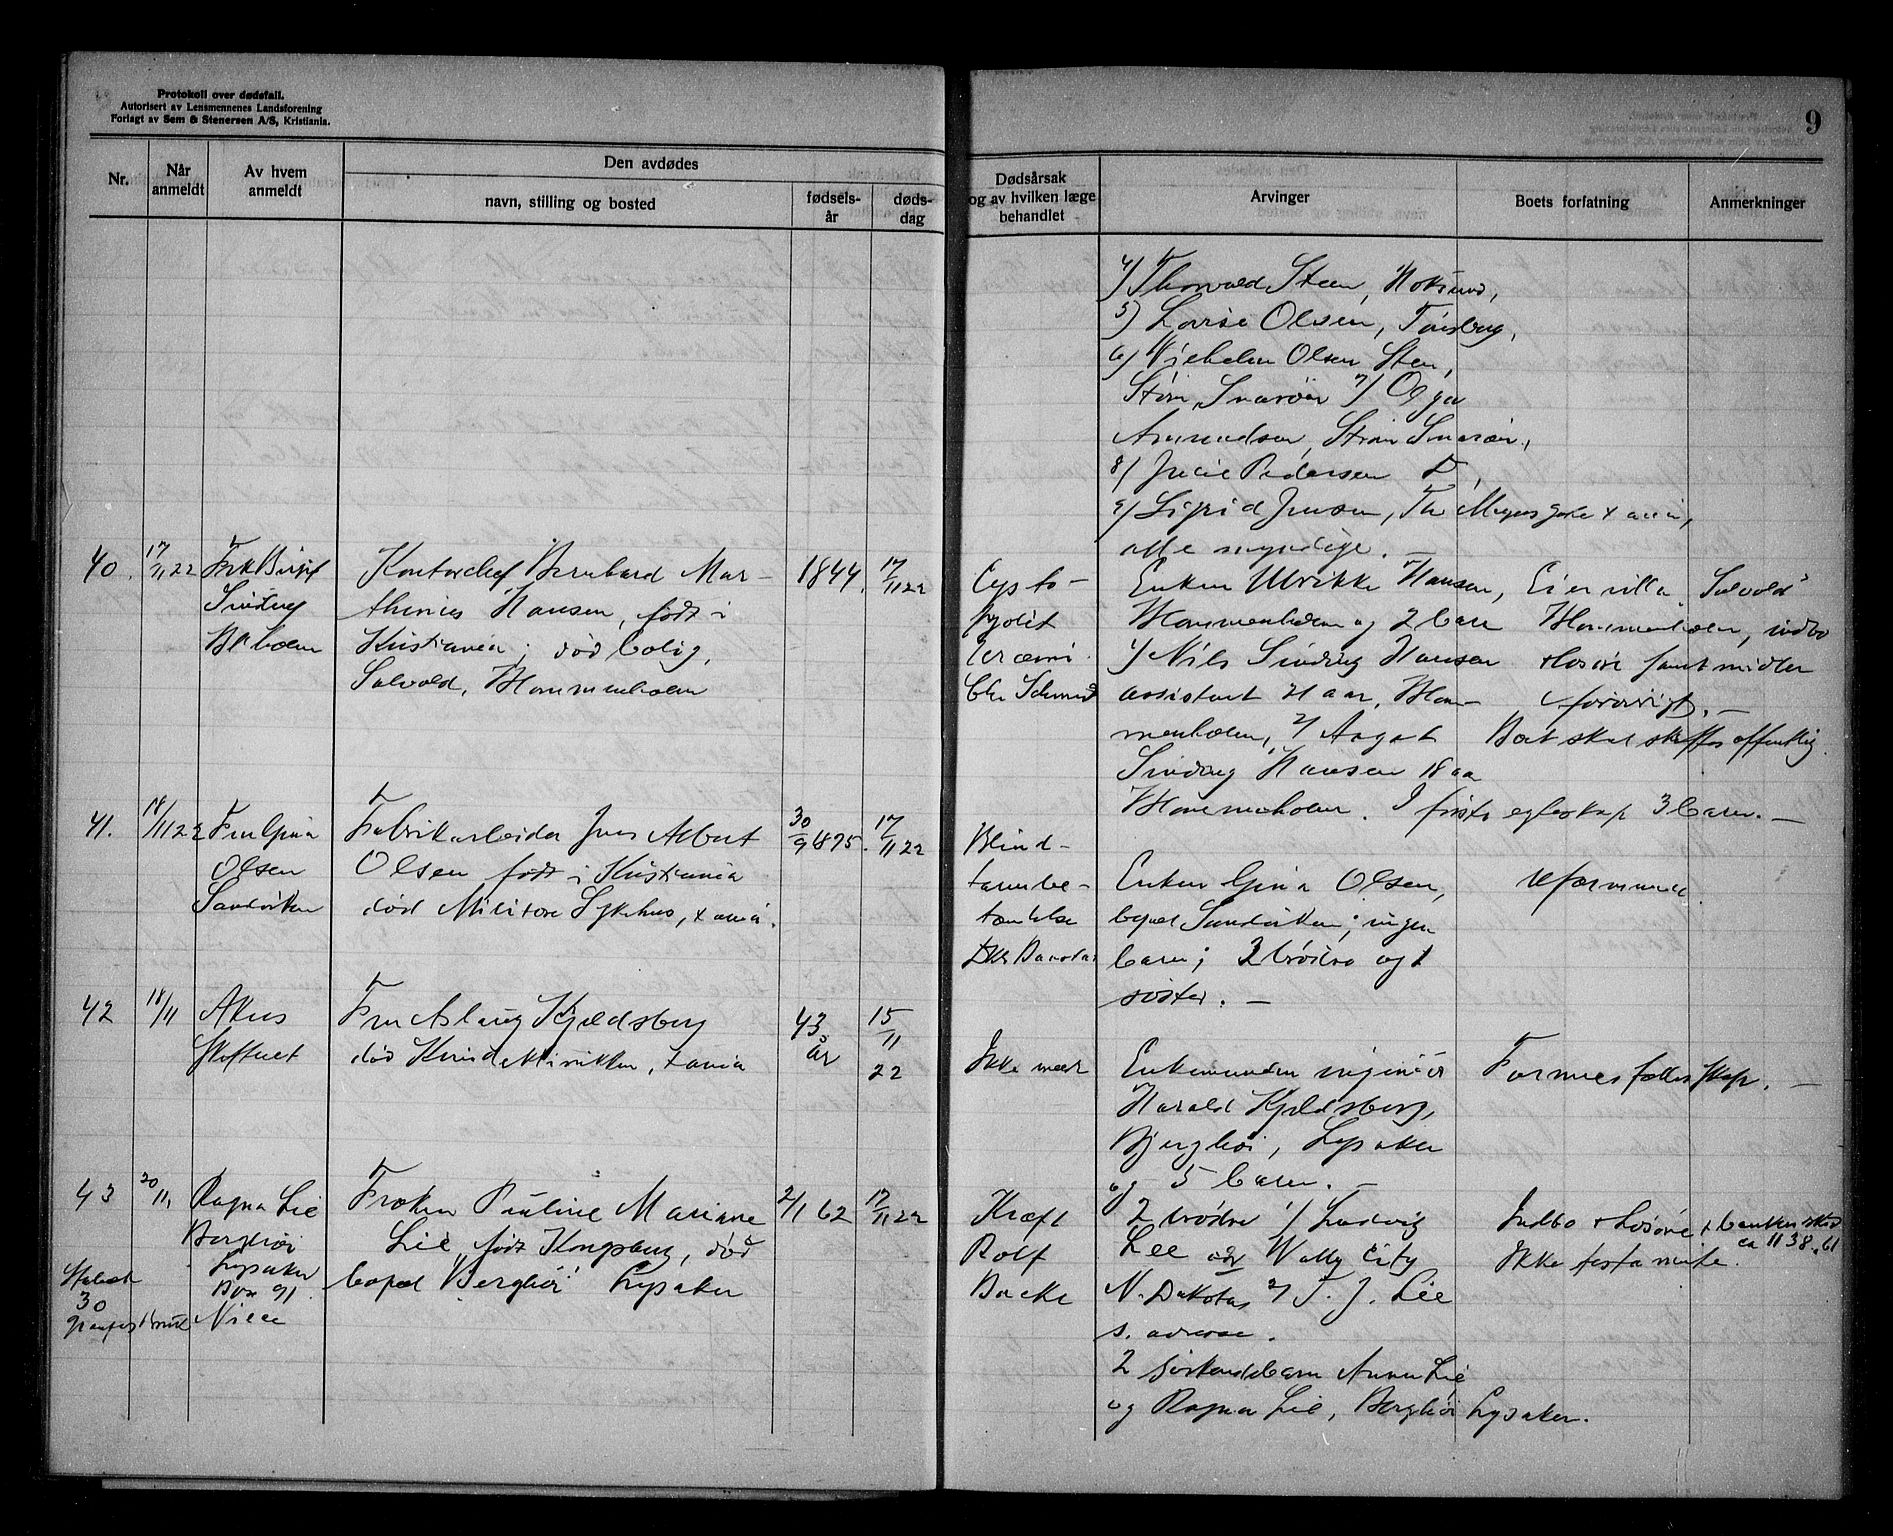 Protokoll over dødsfall.
Autorisert av Lensmennenes Landsforening
Forlagt av Sem & Stenersen A/S, Kristiania.
9
Nr.
Når anmeldt
Av hvem anmeldt
Den avdødes
navn, stilling og bosted
fødsels-år
døds-dag
Dødsårsak og av hvilken læge behandlet
Arvinger
Boets forfatning
Anmerkninger
4) Thorvald Steen, Hoksund,
5) Lovise Olsen, Tønsberg,
6) Vilhelm Olsen Sten,
Snarøen 7) Olga
Amundsen, Snarøen,
8) Julie Pedersen
9) Sigrid Jensen, Th Meyers gate x ania,
alle myndige. —
40. 17/11 22
Frk Birgit
Sinding
Kontorchef Bernhard Mar-
thinius Hansen, født i
Kristiania; død bolig,
Solvold, Blommenholm
1844.
17/11 22
Cysto-
pyelit
Uræmi
Enken Ulrikke Hansen,
Blommenholm og 2 barn
1) Nils Sinding Hansen
assistent 21 aar, Blom-
menholm, 2) Aagot
Sinding Hansen 18 aa
Blommenholm. I første egteskap 3 barn. —
Eier villa "Solvold"
Blommenholm, indbo
+ løsøre samt midler
forøvrigt. —
Boet skal skiftes offentlig.
41. 18/11 22
Fru Gina
Olsen
Sandviken
Fabrikarbeider Jens Albert
Olsen født i Kristiania
død Militære Sykehus, x ania.
30/9 1875.
17/11 22
Blind-
tarmbe-
tændelse
Enken Gina Olsen,
bopæl Sandviken; ingen
barn; 2 brødre og 1
søster. —
uformuende
42 18/11
Akers
Skifteret
Fru Aslaug Kjeldsberg
død Kvindeklinikken, x ania
43 år
15/11 22
Ikke meldt
Enkemanden ingeniør
Harald Kjeldsberg,
Bjerghøi, Lysaker
og 5 barn. —
Formuesfællesskap. —
43 20/11
Ragna Lie
Berghøi
Lysaker
Box 91.
Niece
30
Frøken Pauline Marianne
Lie, født Kongsberg, død
bopæl Berghøi Lysaker
2/1 62
17/11 22
Kræft
Rolf
Backe
2 brødre 1) Ludvig
Lie adr Vally City
N. Dakota, 2) T. J. Lie
s. adresse.
2 søskendebarn Anna Lie
og Ragna Lie, Berghøi Lysaker.
Indbo + løsøre +
ca 1138.61
Ikke testamente.